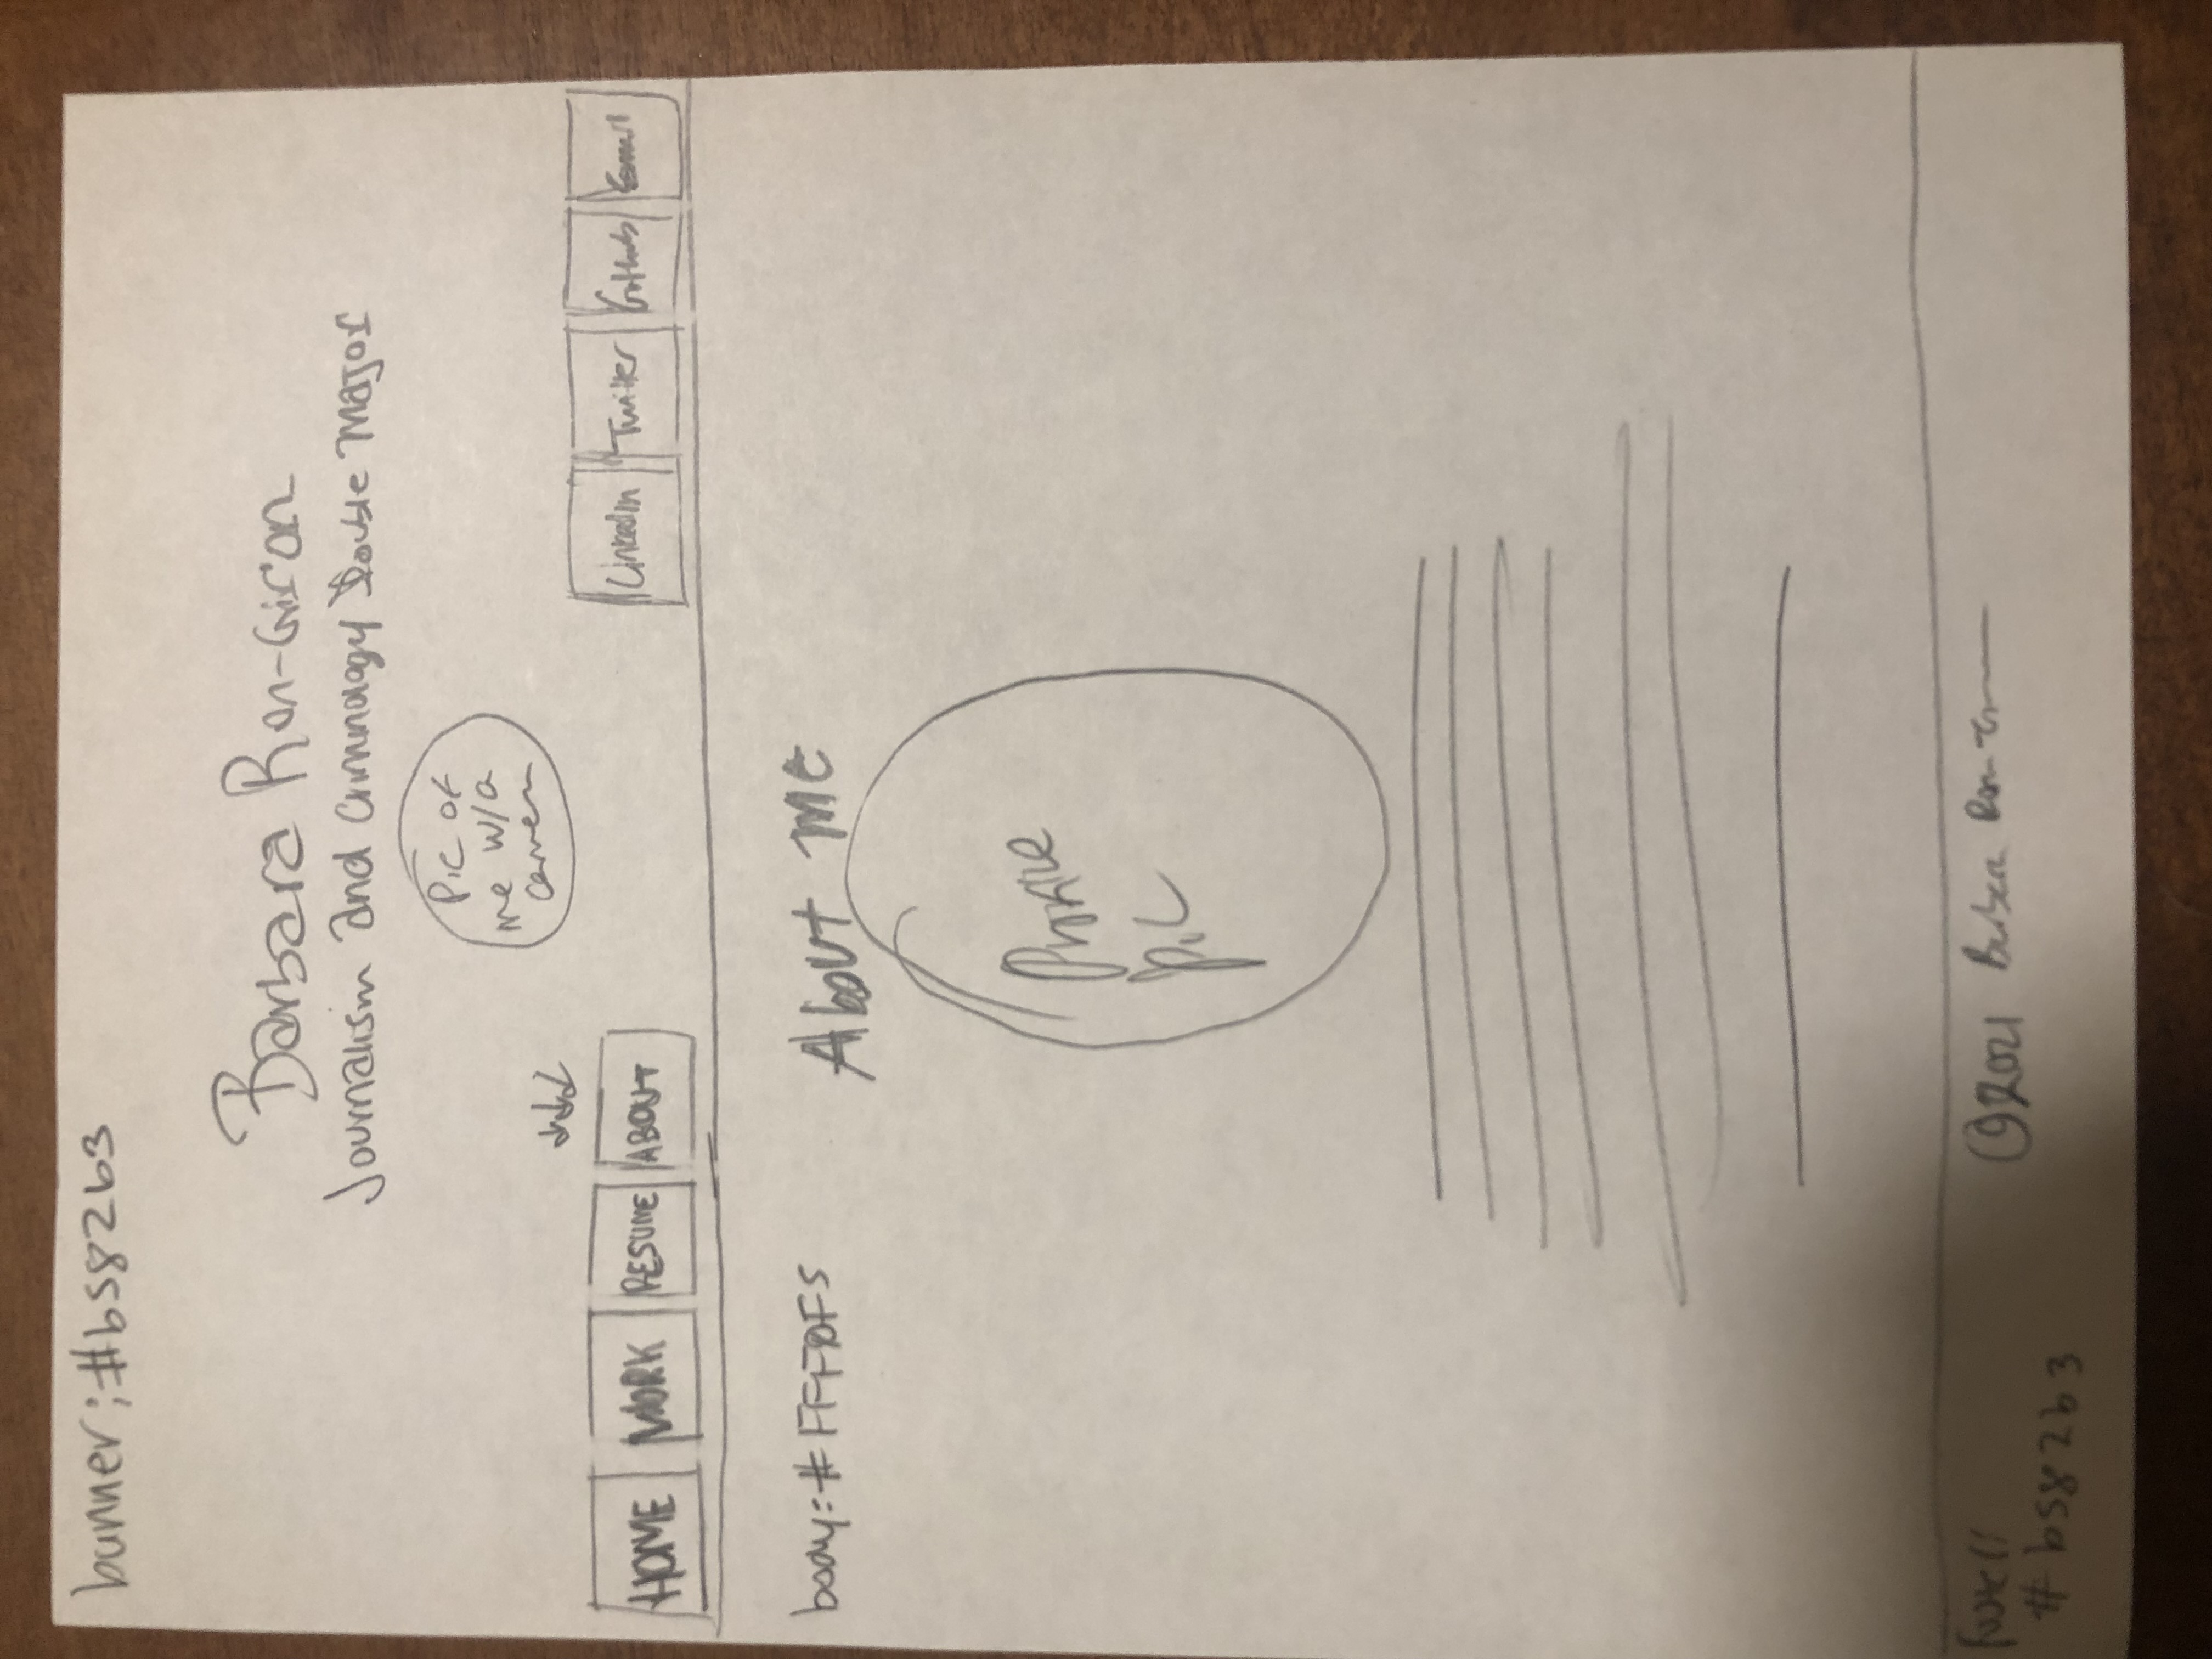 banner: #b582b3
Barbara Ron-Giron
Journalism and Criminology Double Major
Pic of
me w/a
camera
HOME WORK RESUME ABOUT
LinkedIn Twitter Github Email
body: #FFF0F5
About me
Profile
pic
footer
#b582b3
©2021 Barbara Ron-